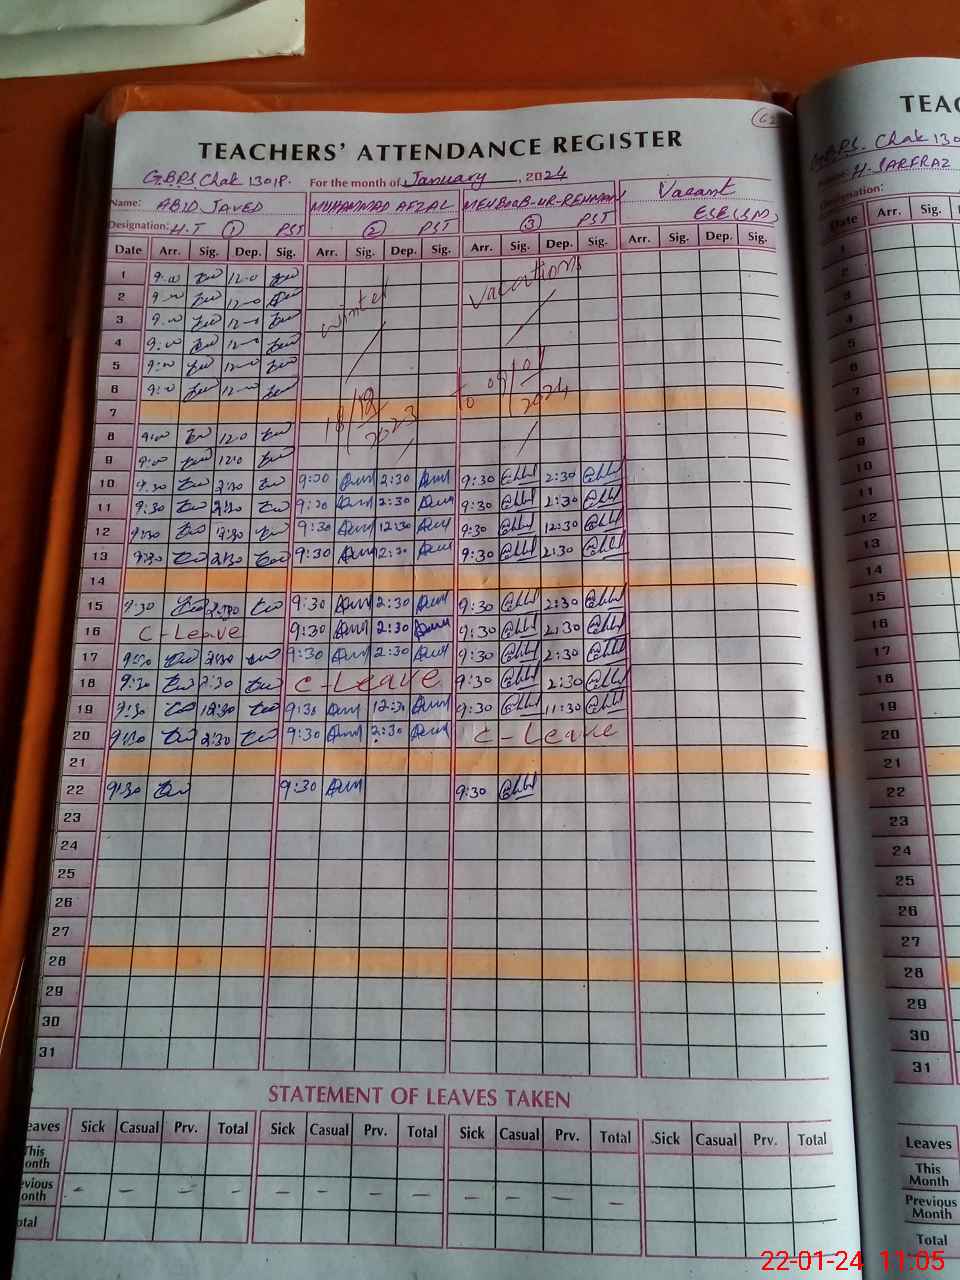 TEACHERS' ATTENDANCE REGISTER
G.B.P.S Chak 130/P. For the month of January, 2024
Name: ABID JAVED MUHAMMAD AFZAL MEHBOOB-UR-REHMAN Vacant
Designation: H.T ① PST ② PST ③ PST ESE(SM)
Date Arr. Sig. Dep. Sig. Arr. Sig. Dep. Sig. Arr. Sig. Dep. Sig. Arr. Sig. Dep. Sig.
1 9:00 12-0
2 9:00 12-0 winter vacations
3 9:00 12-0
4 9:00 12-0
5 9:00 12-0
6 9:00 12-0 18/12/2023 to 09/01/2024
7
8 9:00 12-0
9 9:00 12-0
10 9:30 2:30 9:30 2:30 9:30 2:30
11 9:30 2:30 9:30 2:30 9:30 2:30
12 9:30 12:30 9:30 12:30 9:30 12:30
13 9:30 2:30 9:30 2:30 9:30 2:30
14
15 9:30 2:30 9:30 2:30 9:30 2:30
16 C-Leave 9:30 2:30 9:30 2:30
17 9:30 2:30 9:30 2:30 9:30 2:30
18 9:30 2:30 C-Leave 9:30 2:30
19 9:30 12:30 9:30 12:30 9:30 11:30
20 9:30 2:30 9:30 2:30 C-Leave
21
22 9:30 9:30 9:30
23
24
25
26
27
28
29
30
31
STATEMENT OF LEAVES TAKEN
eaves Sick Casual Prv. Total Sick Casual Prv. Total Sick Casual Prv. Total Sick Casual Prv. Total
This
onth
evious - - - - - - - - - - - -
onth
otal
TEAC
G.B.P.S. Chak 130
H. SARFRAZ
Designation:
Date Arr. Sig.
1
2
3
4
5
6
7
8
9
10
11
12
13
14
15
16
17
18
19
20
21
22
23
24
25
26
27
28
29
30
31
Leaves
This
Month
Previous
Month
Total
22-01-24 11:05